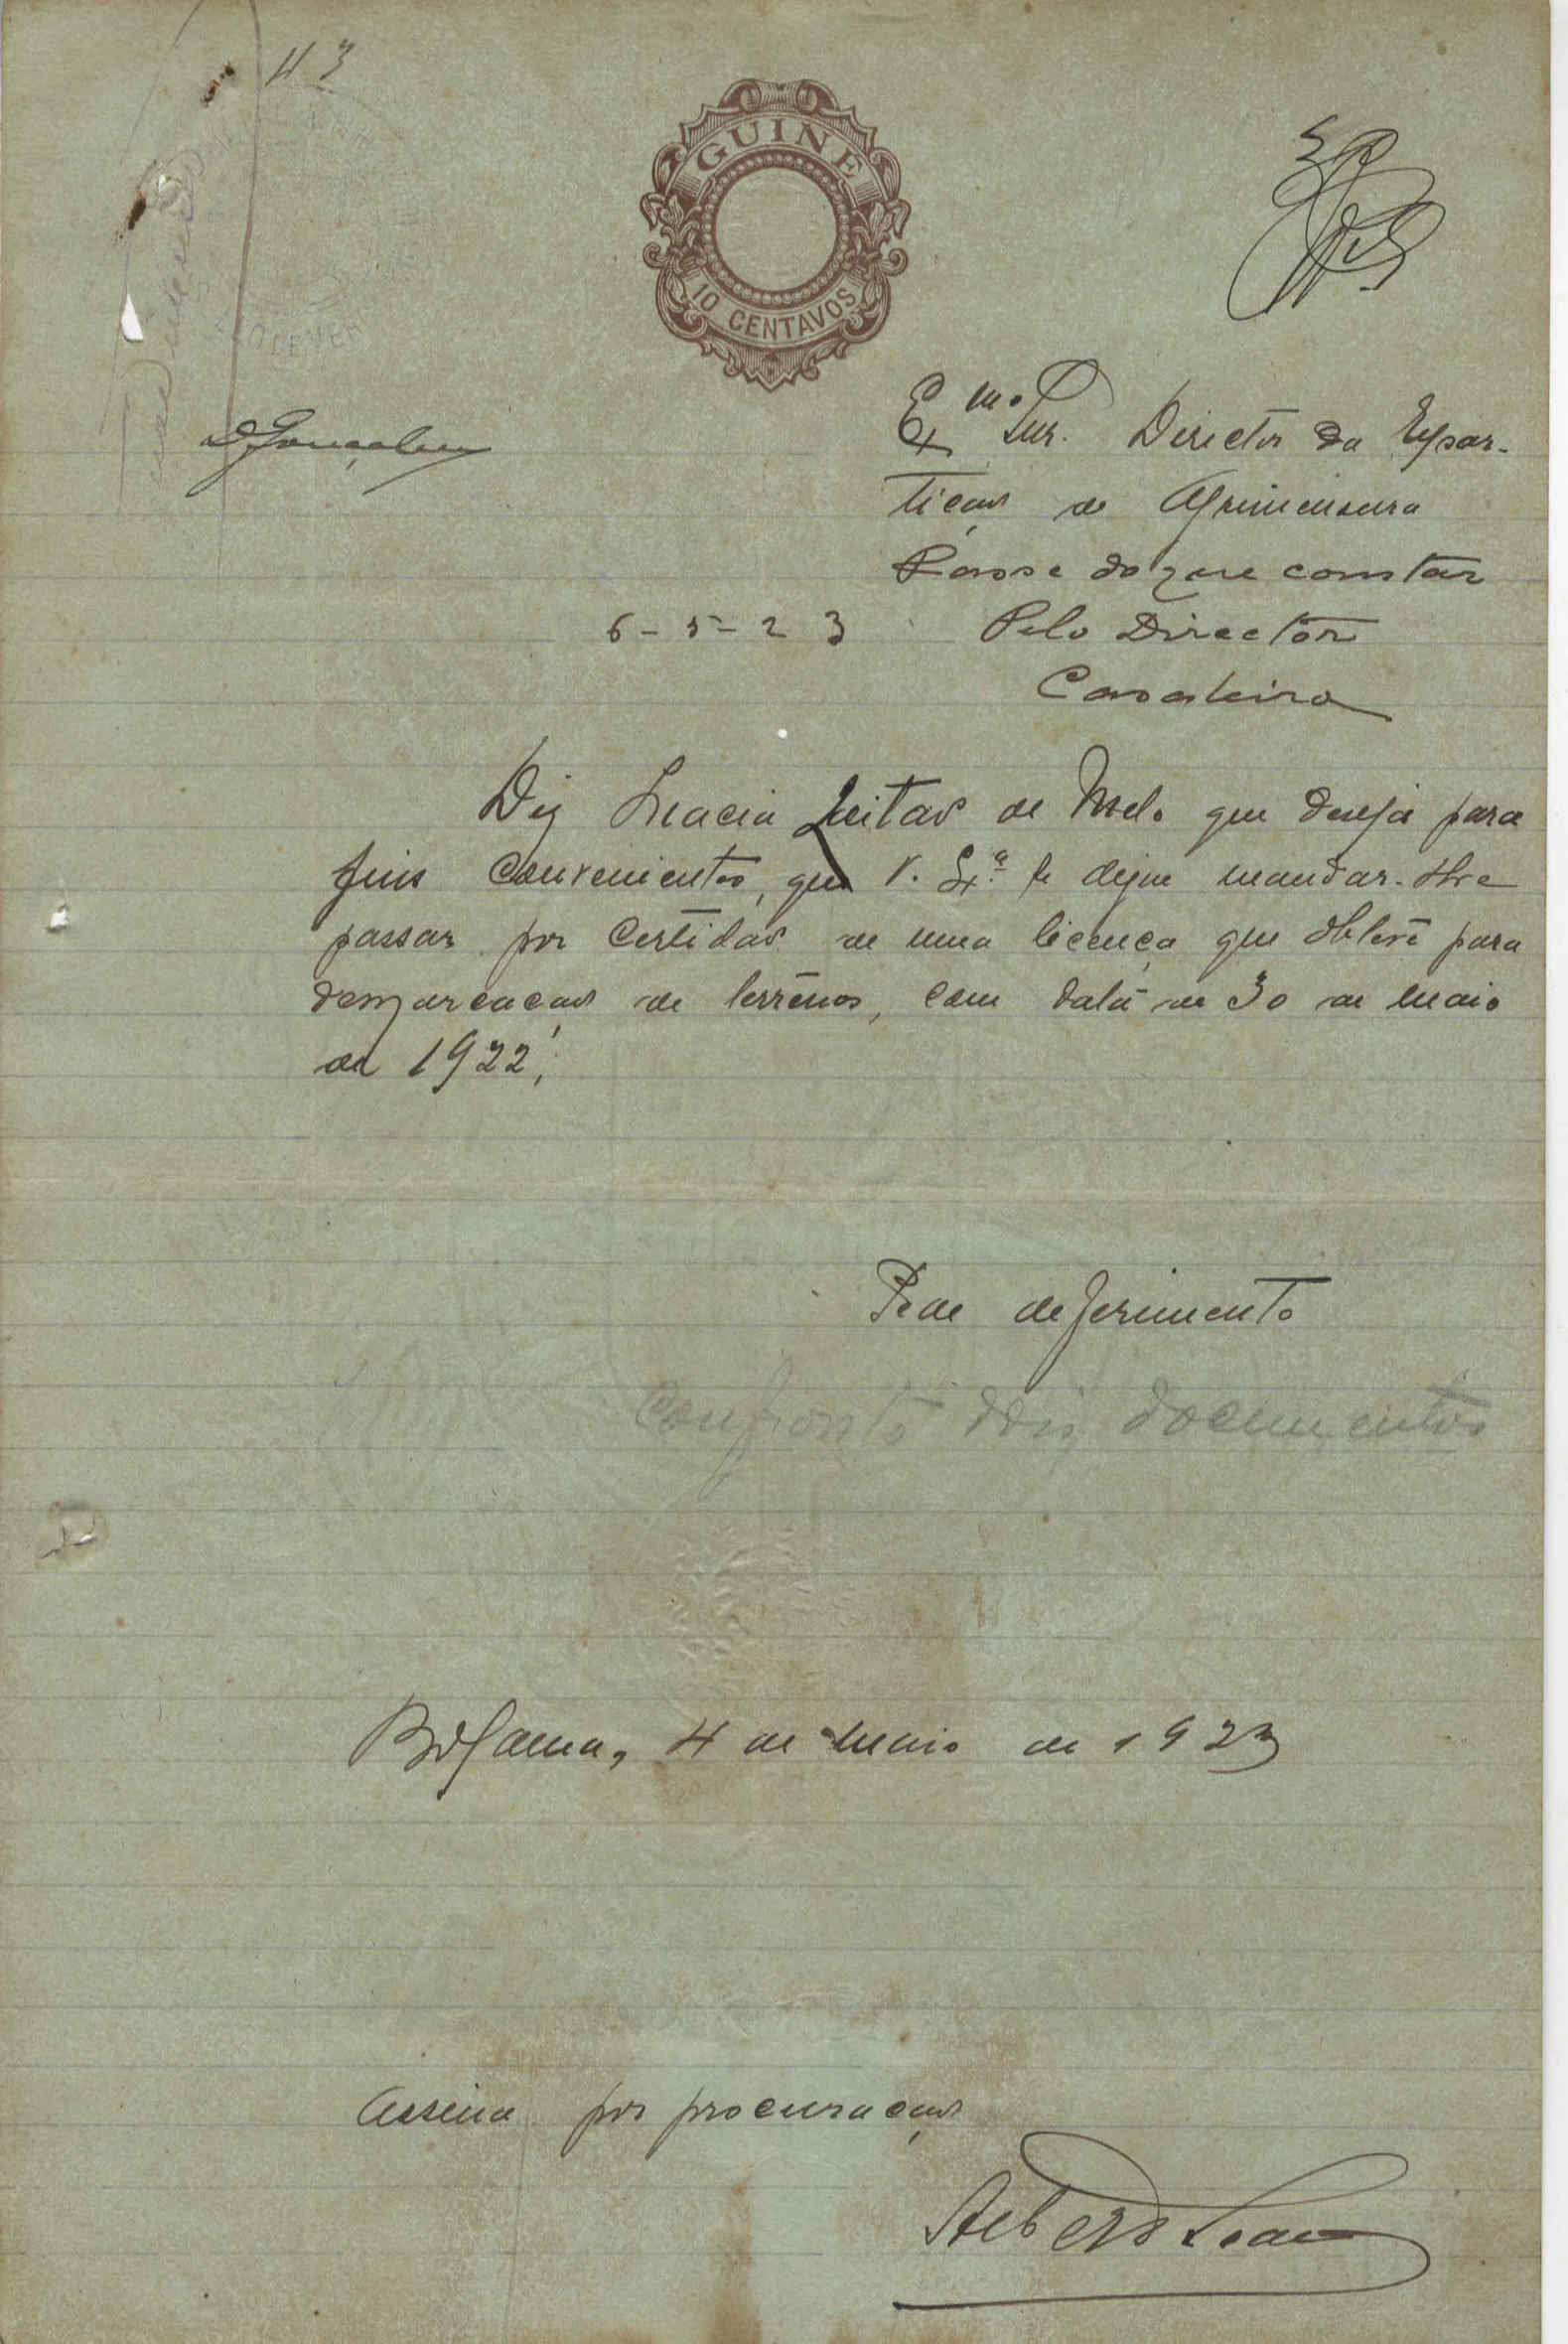 43
GUINÉ
10 CENTAVOS
D Gonçalves
Ex.mo Snr. Director da Repar-
tição de Agrimensura
Passe do que constar
6-5-23 Pelo Director
Diz Leitão de Melo que deseja para
fins convenientes, que V. Ex.ª se digne mandar-lhe
passar por certidão de uma licença que obteve para
demarcação de terrenos, com data de 30 de maio
de 1922.
Pede deferimento
Confronto dois documentos
Bolama, 4 de maio de 1923
Assina por procuração